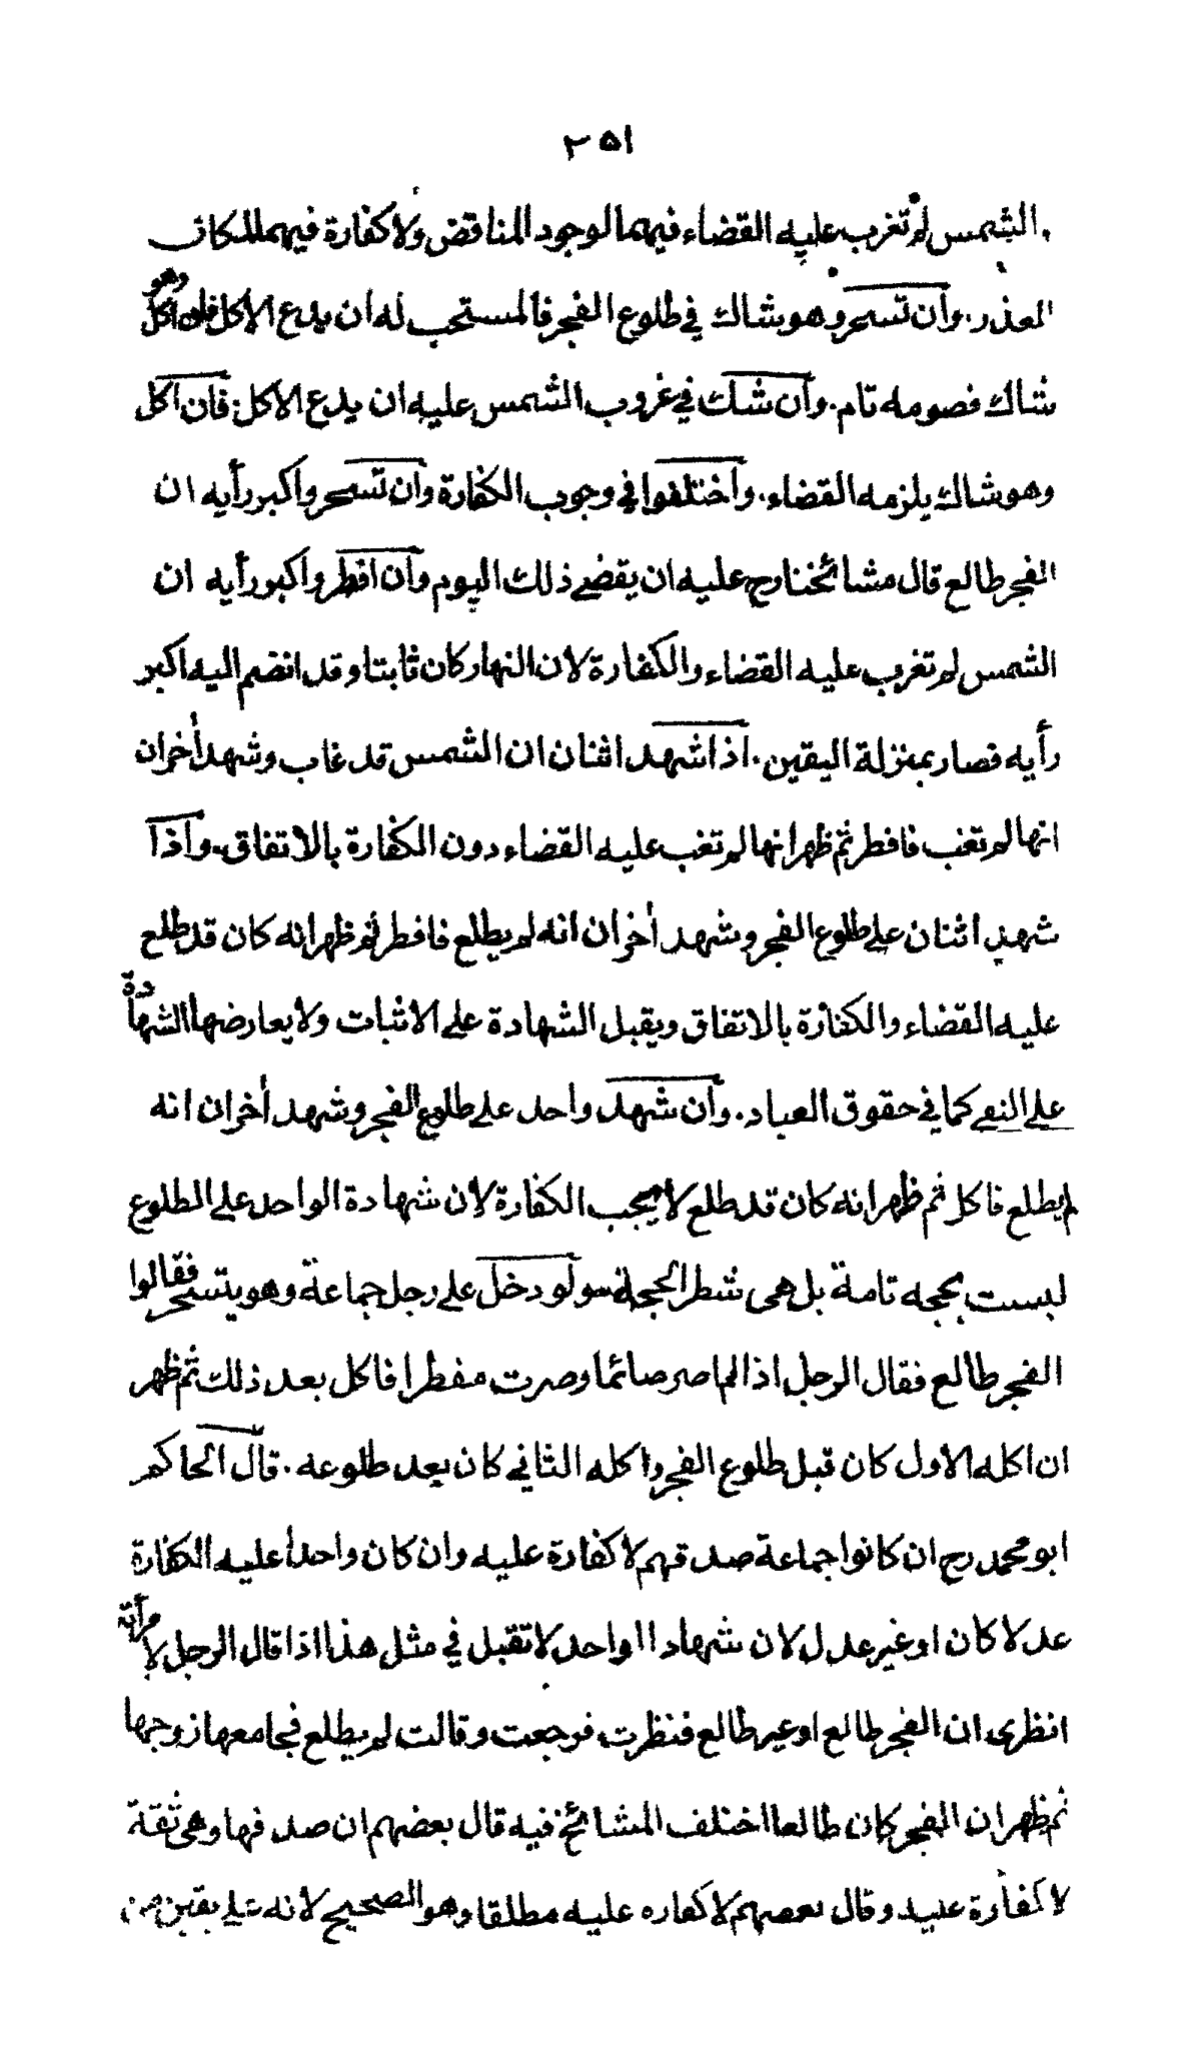 ٢٥١
الشمس لم تغرب عليه القضاء فيهما لوجود المناقض ولا كفارة فيهما لمكان
العذر. وان تسحر وهو شاك في طلوع الفجر فالمستحب له ان يدع الاكل فلو اكل وهو
شاك فصومه تام. وان شك في غروب الشمس عليه ان يدع الاكل: فان اكل
وهو شاك يلزمه القضاء. واختلفوا في وجوب الكفارة وان تسحر واكبر رأيه ان
الفجر طالع قال مشائخنا رح عليه ان يقضي ذلك اليوم وان افطر واكبر رأيه ان
الشمس لم تغرب عليه القضاء والكفارة لان النهار كان ثابتا وقد انضم اليه اكبر
رأيه فصار بمنزلة اليقين. اذا شهد اثنان ان الشمس قد غاب وشهد أخران
انها لم تغب فافطر ثم ظهر انها لم تغب عليه القضاء دون الكفارة بالاتفاق. واذا
شهد اثنان على طلوع الفجر وشهد أخران انه لم يطلع فافطر ثم ظهر انه كان قد طلع
عليه القضاء والكفارة بالاتفاق ويقبل الشهادة على الاثبات ولا يعارضها الشهادة
على النفي كما في حقوق العباد. وان شهد واحد على طلوع الفجر وشهد أخران انه
لم يطلع فاكل ثم ظهر انه كان قد طلع لا يجب الكفارة لان شهادة الواحد على الطلوع
ليست بحجه تامة بل هى شطر الحجة ولو دخل على رجل جماعة وهو يتسحر فقالوا
الفجر طالع فقال الرجل اذا لم اصر صائما وصرت مفطرا فاكل بعد ذلك ثم ظهر
ان اكله الاول كان قبل طلوع الفجر واكله الثاني كان بعد طلوعه. قال الحاكم
ابو محمد رح ان كانوا جماعة صدقهم لا كفارة عليه وان كان واحدا عليه الكفارة
عدلا كان او غير عدل لان شهادة الواحد لا تقبل في مثل هذا اذا قال الرجل لامرأته
انظرى ان الفجر طالع او غير طالع فنظرت فرجعت وقالت لم يطلع فجامعها زوجها
ثم ظهر ان الفجر كان طالعا اختلف المشائخ فيه قال بعضهم ان صدقها وهى ثقة
لا كفارة عليه وقال بعضهم لا كفاره عليه مطلقا وهو الصحيح لانه على يقين من